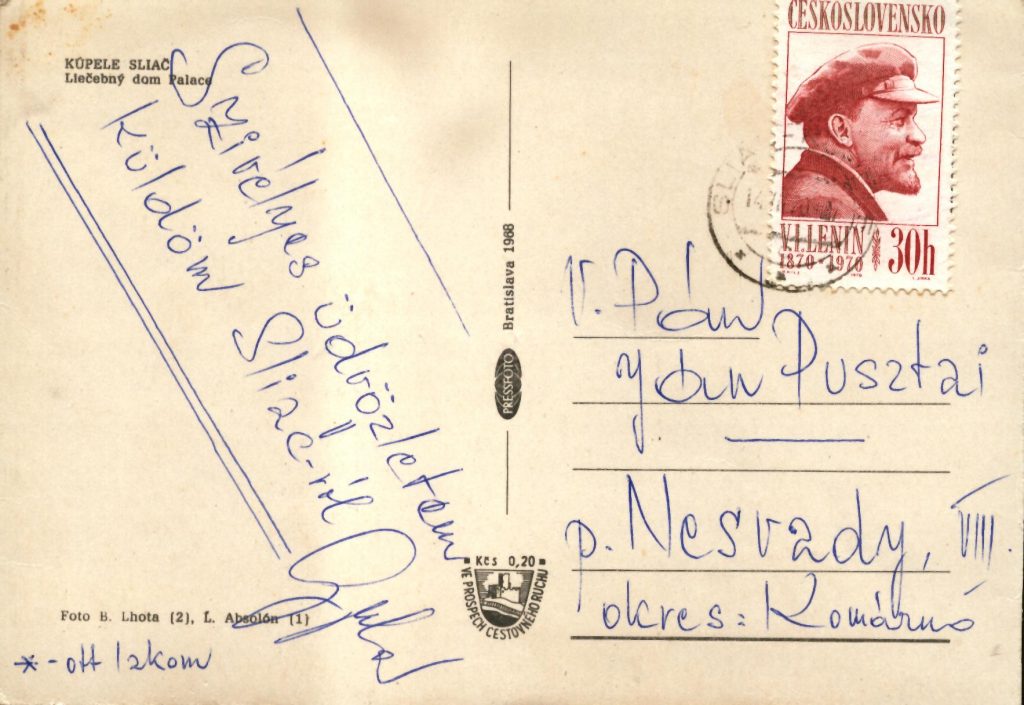 KÚPELE SLIAČ
Liečebný dom Palace
Szívélyes üdvözletem
küldöm Sliac-ról
Foto B. Lhota (2), Ľ. Absolón (1)
*-ott lakom
Bratislava 1968
PRESSFOTO
Kčs 0,20
VE PROSPĚCH CESTOVNÉHO RUCHU
ČESKOSLOVENSKO
V.I.LENIN
1870-1970
30h
SLIAČ
V. Pán
Ján Pusztai
p. Nesvady, VIII.
okres: Komárno